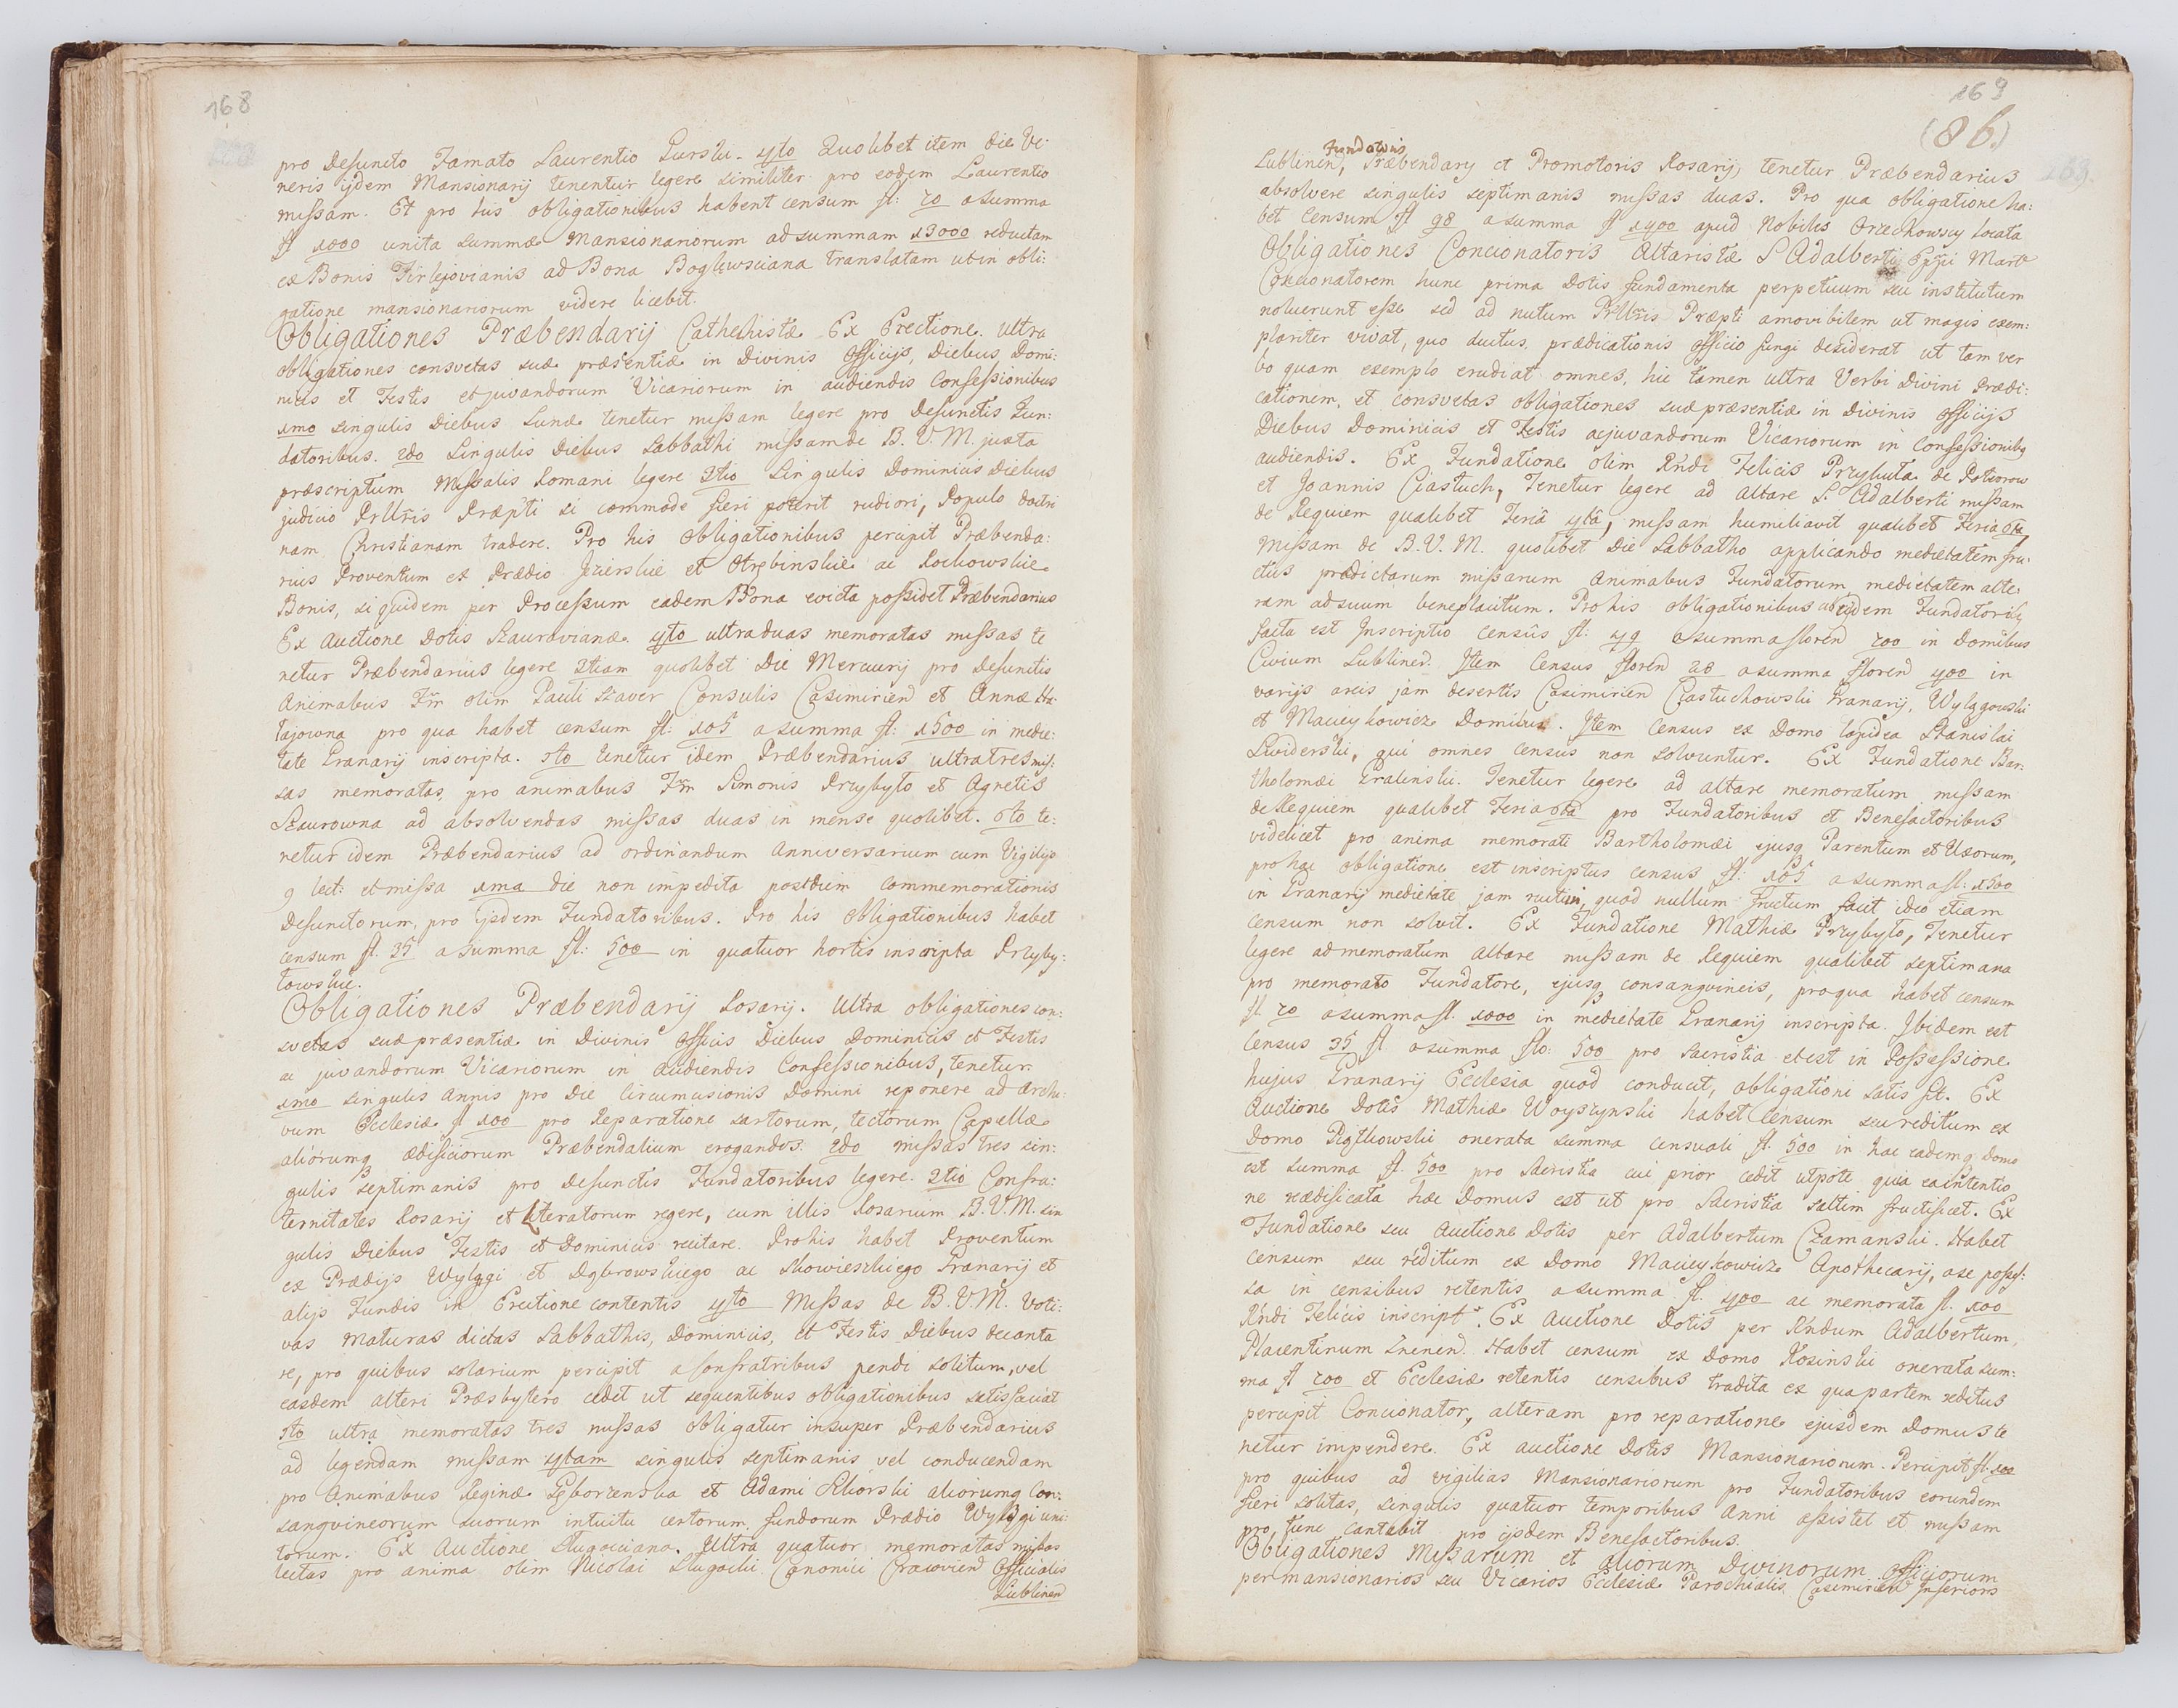 168
pro defuncto Famato Laurentio Gurski. 4to Quolibet item die Ve:
neris ijdem Mansionarij tenentur legere similiter pro eodem Laurentio
missam. Et pro his obligationibus habent censum fl: 70 a summa
fl 1000 unita summæ Mansionariorum ad summam 13000 reductam
ex Bonis Firlejovianis ad Bona Boglewsciana translatam ut in obli:
gatione mansionariorum videre licebit.
Obligationes Præbendarij Cathechistæ Ex Erectione. Ultra
obligationes consvetas suæ præsentiæ in Divinis Officijs, Diebus, Domi:
nicis et Festis et juvandorum Vicariorum in audiendis Confessionibus
1mo singulis Diebus Lunæ tenetur missam legere pro Defunctis Fun:
datoribus. 2do Singulis Diebus Sabbathi missam de B. V. M. juxta
præscriptum Missalis Romani legere 3tio Singulis Dominicis Diebus
judicio Prllris Præpti si commode fieri poterit rudiori, Populo doctri
nam Christianam tradere. Pro his obligationibus percipit Præbenda:
rius Proventum ex Prædio Jezierskie et Otrębinskie ac Rochowskie
Bonis, siquidem per Processum eadem Bona evicta possidet Præbendarius
Ex Auctione Dotis Szauravianæ. 4to ultra duas memoratas missas te
netur Præbendarius legere 3tiam quolibet Die Mercurij pro Defunctis
Animabus Fm olim Pauli Szaver Consulis Casimirien et Annæ
tajowna pro qua habet censum fl: 105 a summa fl: 1500 in medie:
tate Granarij inscripta. 5to tenetur idem Præbendarius ultra tres mis:
sas memoratas, pro animabus Fm Simonis Przybyto et Agnetis
Szaurowna ad absolvendas missas duas in mense quolibet. 6to te:
netur idem Præbendarius ad ordinandum Anniversarium cum Vigilijs
9 lect: et missa 1ma die non impedita post Diem Commemorationis
Defunctorum, pro ijsdem Fundatoribus. Pro his Obligationibus habet
censum fl. 35 a summa fl: 500 in quatuor hortis inscripta Przyby:
towskie.
Obligationes Præbendarij Rosarij. Ultra obligationes con:
svetas suæ præsentiæ in Divinis Officis Diebus Dominicis et Festis
ac juvandorum Vicariorum in audiendis Confessionibus, tenetur
1mo singulis Annis pro Die Circumcisionis Domini reponere ad Archi:
vum Ecclesiæ fl 100 pro Reparatione sartorum, tectorum Capellæ
aliorumq ædificiorum Præbendalium erogandos. 2do missas tres sin:
gulis septimanis pro Defunctis Fundatoribus legere. 3tio Confra:
ternitates Rosarij et Literatorum regere, cum illis Rosarium B.V.M. sin
gulis Diebus Festis et Dominicis recitare. Pro his habet Proventum
ex Prædijs Wylygi et Dąbrowskiego ac Skowieszkiego Granarij et
alijs Fundis in Erectione contentis 4to Missas de B.V.M. voti:
vas maturas dictas Sabbathis, Dominicis, et Festis Diebus decanta
re, pro quibus solarium percipit a Confratribus pendi solitum, vel
easdem alteri Præsbytero cedet ut sequentibus obligationibus satisfaciat
5to ultra memoratas tres missas obligatur insuper Præbendarius
ad legendam missam 4tam singulis septimanis vel conducendam
pro Animabus Reginæ Gęborzenska et Adami Skiorski aliorumq Con:
sangvineorum suorum intuitu certorum fundorum Prædio Wylygi uni:
torum. Ex Auctione Slugociana. Ultra quatuor memoratas missas
lectas pro anima olim Nicolai Slugocki Canonici Cracovien Officialis
Lublinen
169
(86.)
Fundatoris
Lublinen, Præbendarij et Promotoris Rosarij, tenetur Præbendarius
absolvere singulis septimanis missas duas. Pro qua obligatione ha:
bet Censum fl 98 a summa fl 1400 apud Nobiles Orzechowscy locata
Obligationes Concionatoris Altaristæ S Adalberti Eppi Mart
Concionatorem hunc prima Dotis fundamenta perpetuum seu institutum
noluerunt esse sed ad nutum Prllris Præpti amovibilem ut magis exem:
plariter vivat, quo ductus, prædicationis officio fungi desiderat ut tam ver
bo quam exemplo erudiat omnes, hic tamen ultra Verbi Divini Prædi:
cationem, et consvetas obligationes suæ præsentiæ in Divinis Officijs
Diebus Dominicis et Festis acjuvandorum Vicariorum in Confessionibq
audiendis. Ex Fundatione olim Rndi Felicis Przyłuta de Potworow
et Joannis Ciastuch, Tenetur legere ad Altare S. Adalberti missam
de Requiem qualibet Feriâ 4tâ, missam humiliavit qualibet Feria 6ta
Missam de B. V. M. quolibet Die Sabbatho applicando medietatem fru:
ctus prædictarum missarum Animabus Fundatorum medietatem alte
ram ad suum beneplacitum. Pro his obligationibus ab ejdem Fundatoribq
facta est Inscriptio censûs fl: 49 a summa floren 700 in Domibus
Civium Lublinen. Item Census floren 28 a summa floren 400 in
varijs areis jam desertis Casimirien Ciastuchowski Granarij, Wylygowski
et Macieykowicz Domibus. Item Census ex Domo lapidea Stanislai
Swiderski, qui omnes census non solvuntur. Ex Fundatione Bar:
tholomæi Gralinski. Tenetur legere ad altare memoratum missam
de Requiem qualibet Feria 6ta pro Fundatoribus et Benefactoribus
videlicet pro anima memorati Bartholomæi ejusq Parentum et Uxorum,
pro hac obligatione est inscriptus census fl: 105 a summa fl: 1500
in Granarij medietate jam ruitivi, quod nullum fructum facit ideo etiam
censum non solvit. Ex Fundatione Mathiæ Przybyto, Tenetur
legere ad memoratum Altare missam de Requiem qualibet septimana
pro memorato Fundatore, ejusq consangvineis, pro qua habet censum
fl 70 a summa fl. 1000 in medietate Granarij inscripta. Ibidem est
Census 35 fl a summa flo: 500 pro Sacristia et est in Possessione
hujus Granarij Ecclesia quod conducit, obligationi satis fit. Ex
Auctione Dotis Mathiæ Woyszynski habet Censum seu reditum ex
Domo Piątkowski onerata summa censuali fl. 500 in hac eademq Domo
est summa fl. 500 pro Sacristia cui prior cedit utpote quia ea intentio
ne reædificata hæc Domus est ut pro Sacristia saltim fructificet. Ex
Fundatione seu Auctione Dotis per Adalbertum Czamanski. Habet
censum seu reditum ex Domo Macieykowicz Apothecarij, a se posses:
sa in censibus retentis a summa fl. 400 ac memorata fl. 100
Rndi Felicis inscript. Ex Auctione Dotis per Rndum Adalbertum,
Placentinum Gnenen. Habet censum ex Domo Kosinski onerata sum:
ma fl 700 et Ecclesiæ retentis censibus tradita ex qua partem reditus
percipit Concionator, alteram pro reparatione ejusdem Domus te
netur impendere. Ex auctione Dotis Mansionariorum. Percipit fl. 100
pro quibus ad vigilias Mansionariorum pro Fundatoribus eorundem
fieri solitas, singulis quatuor temporibus Anni assistet et missam
pro tunc cantabit pro ijsdem Benefactoribus.
Obligationes Missarum et aliorum Divinorum Officiorum
per mansionarios seu Vicarios Ecclesiæ Parochialis Casimirien Inferioris